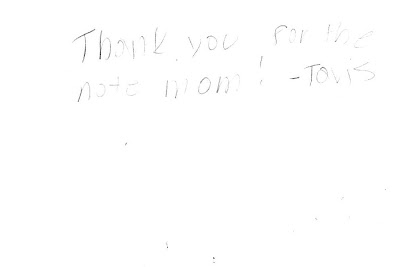 Thank you for the
note mom! -Tavis